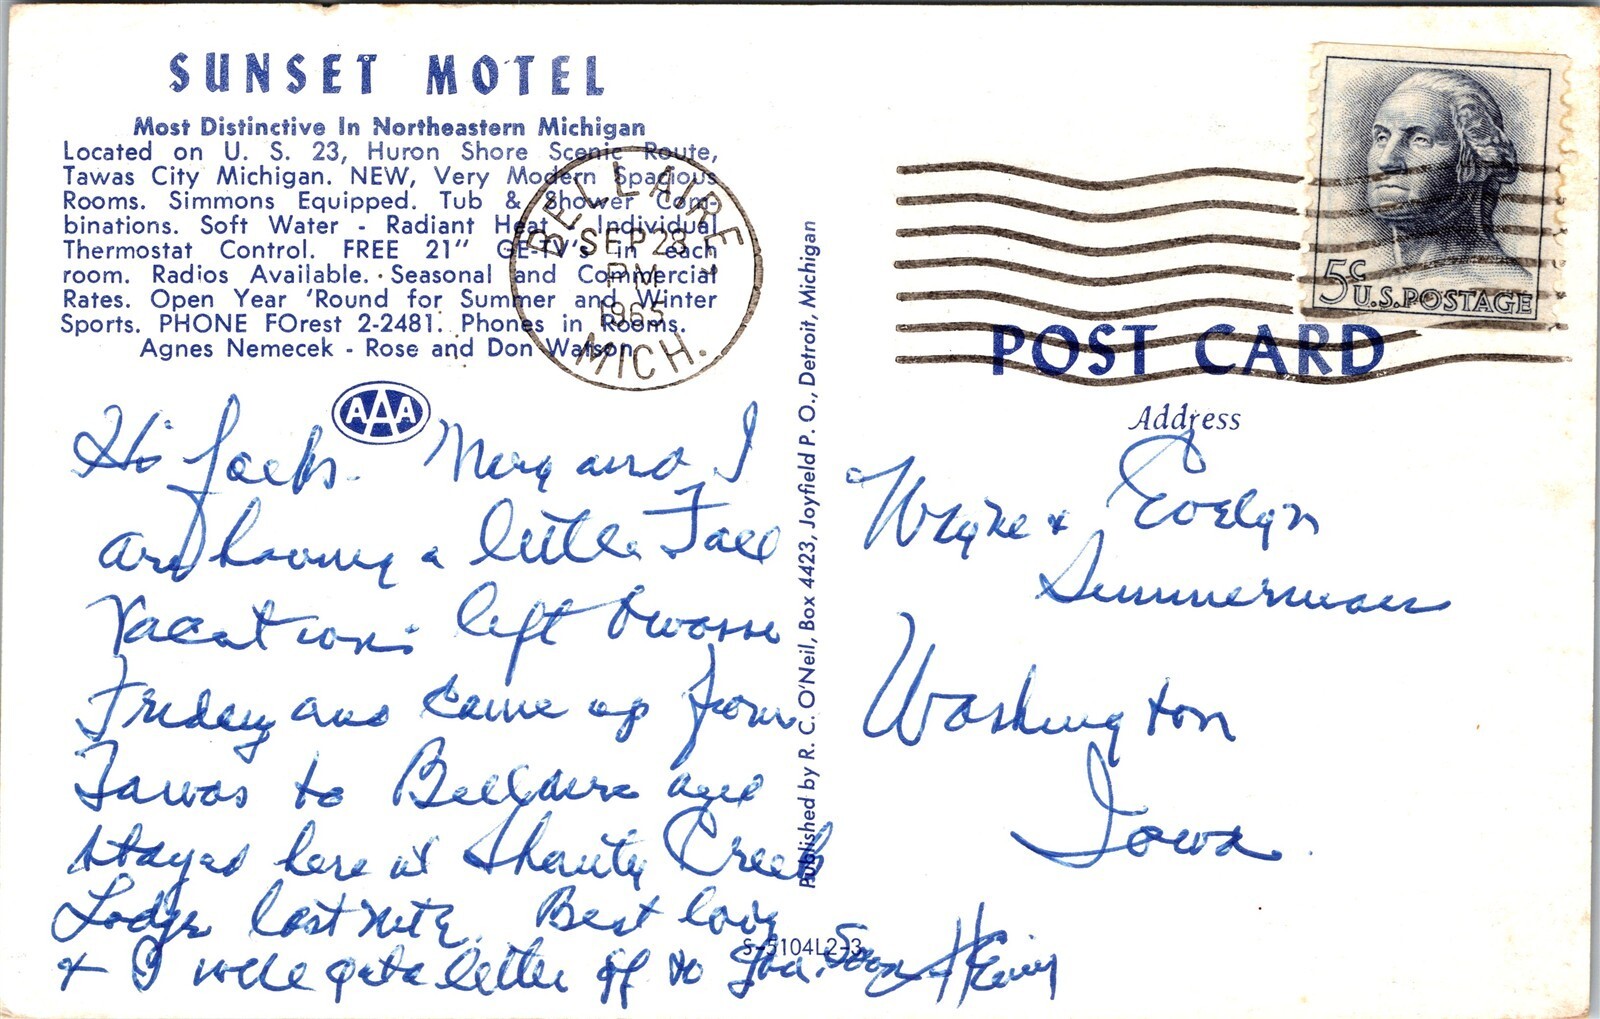 SUNSET MOTEL
Most Distinctive In Northeastern Michigan
Located on U. S. 23, Huron Shore Scenic Route,
Tawas City Michigan. NEW, Very Modern Spacious
Rooms. Simmons Equipped. Tub & Shower Com-
binations. Soft Water - Radiant Heat - Individual
Thermostat Control. FREE 21" GE-TV's in each
room. Radios Available. Seasonal and Commercial
Rates. Open Year 'Round for Summer and Winter
Sports. PHONE FOrest 2-2481. Phones in Rooms.
Agnes Nemecek - Rose and Don Watson
AAA
BELLAIRE
SEP 28
PM
1965
MICH.
Hi folks. Mary and I
are having a little Fall
Vacation: left Owosso
Friday and came up from
Tawas to Bellaire and
stayed here at Shanty Creek
Lodge last nite. Best love
& I will get a letter off to you. Soon
Published by R. C. O'Neil, Box 4423, Joyfield P. O., Detroit, Michigan
S-5104L2-3
5c
U.S. POSTAGE
POST CARD
Address
Wayne & Evelyn
Summerman
Washington
Iowa.